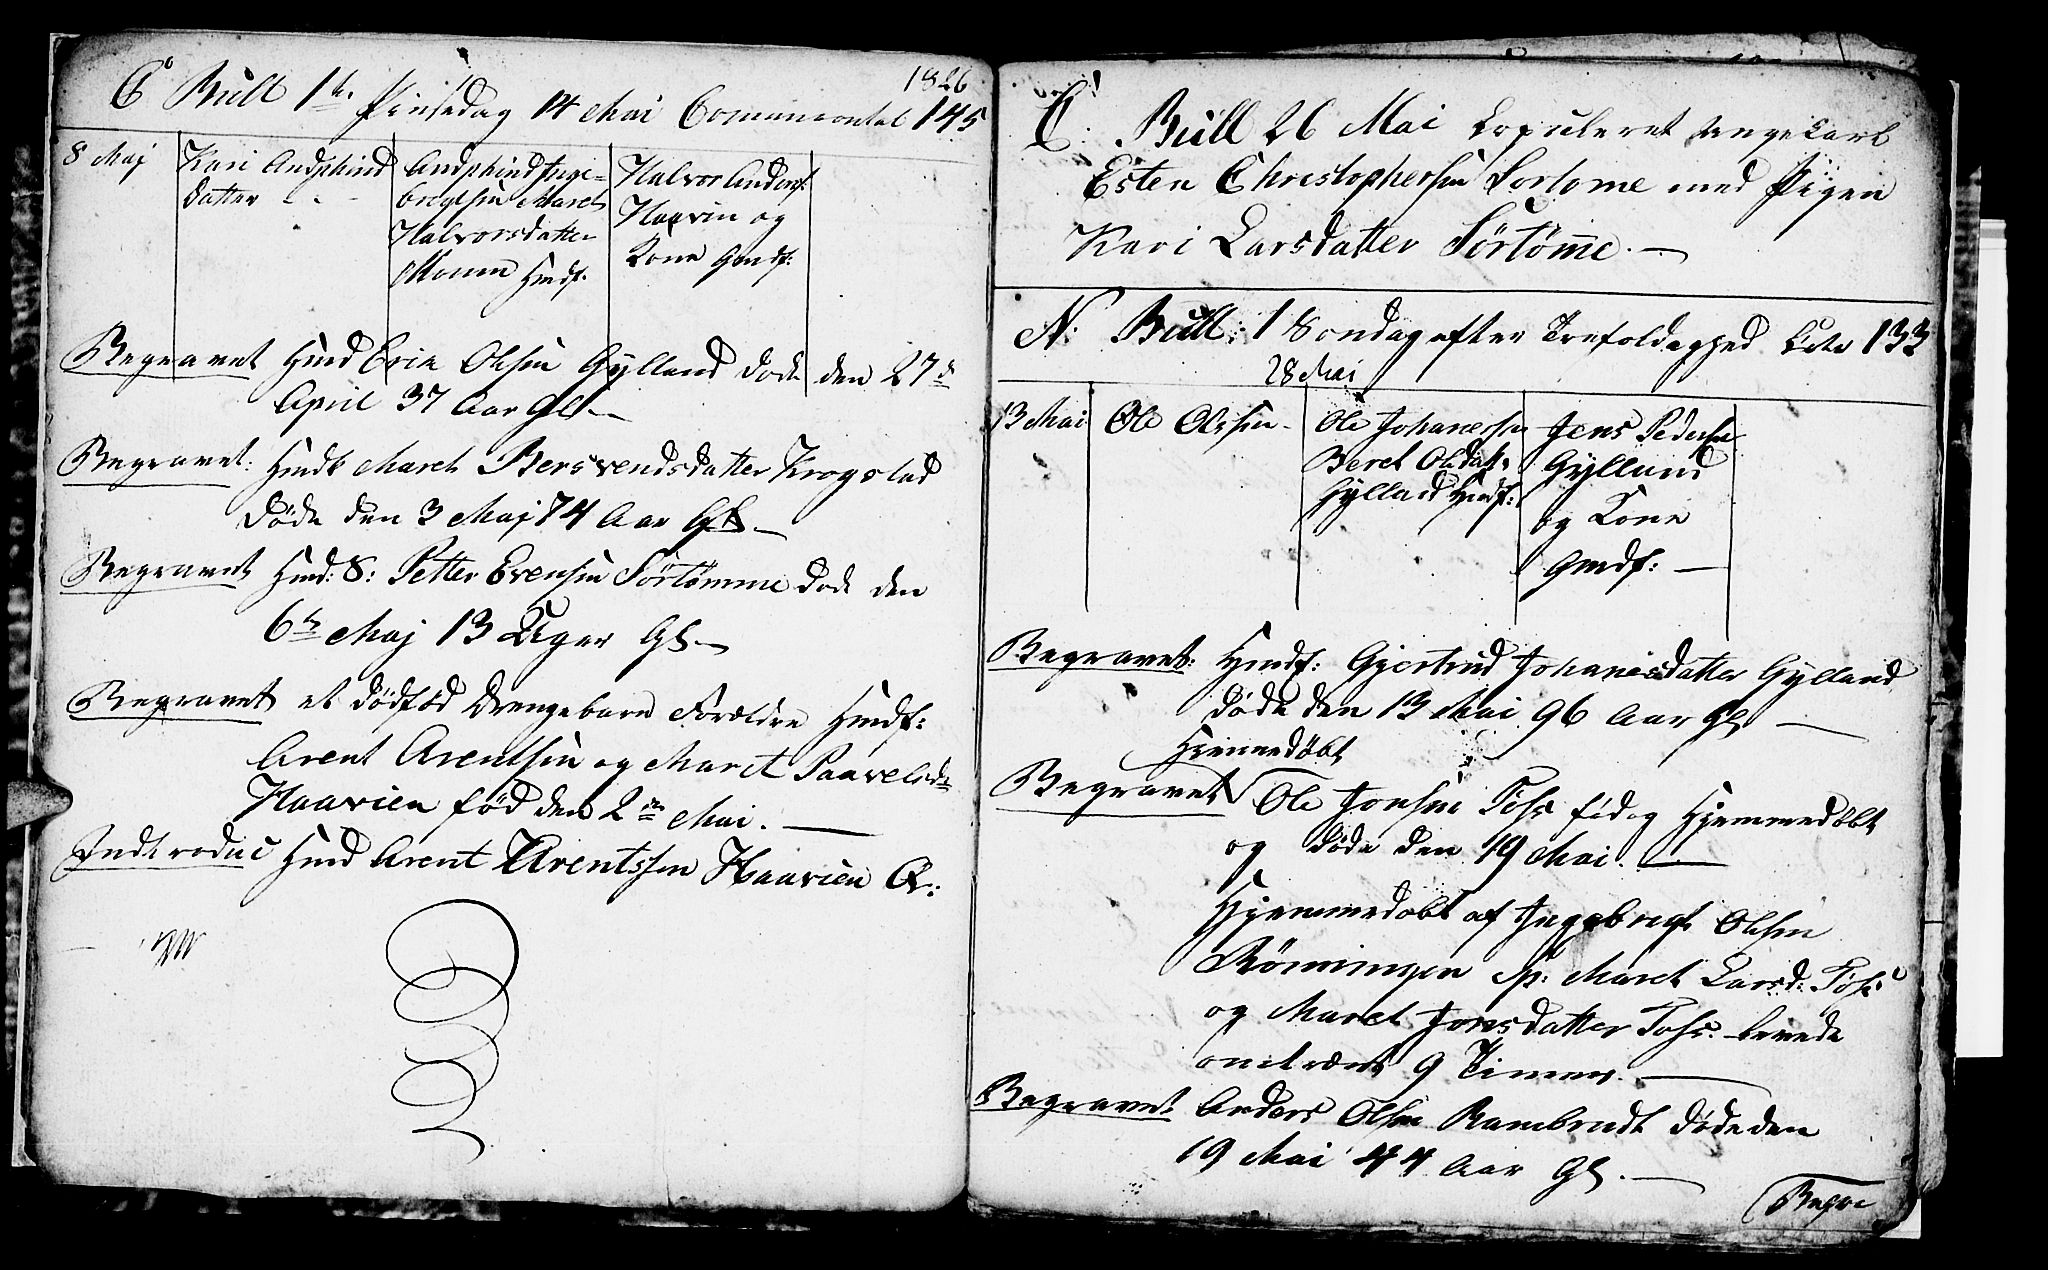 1826
C Bull 1te Pinsedag 14 Mai Comunicantal 145
8 Maj
Kari Andphind
datter
Andphind Inge-
brigtsen Maret
Halvorsdatter
Moum Hmdf:
Halvor Anders:
Haavin og
Kone Gmdf:
Begravet Hmd Erik Olsen Gylland døde den 27de
April 37 Aar Gl.
Begravet: Hmdk Maret Bersvendsdatter Krogstad
døde den 3 Maj 74 Aar Gl.
Begravet Hmd: S: Petter Evensen Sørtømme døde den
6te Maj 13 Uger Gl.
Begravet et dødfød Drengebarn Forældre Hmdf:
Arent Arentsen og Maret Paavelsd:
Haavien fød den 2den Mai.
Indtroduc Hmd Arent Arentssen Haavien K:
C: Bull 26 Mai Copuleret unge Carl
Esten Christophersen Sortome med Pigen
Kari Larsdatter Sørtøme.
N: Bull: 1 Sondag efter Trefoldaghed 133
28 Mai
13 Mai
Ole Olssen
Ole Johanesen
Beret Olsdatt:
Gylland Hmdf:
Jens Pedersen
Gylland
og Kone
Gmdf:
Begravet: Hmdf: Gjertrud Johanesdatter Gylland
døde den 13 Mai 96 Aar Gl
Hjemmedøbt
Begravet Ole Jonsen Foss fød og Hjemmedøbt
og døde den 19 Mai.
Hjemmedøbt af Ingebregt Olsen
Rønningen Sp: Maret Larsd: Foss
og Maret Jonsdatter Foss. levede
omtrent 9 Timer.
Begravet Anders Olsen Rambradt døde den
19 Mai 44 Aar Gl.
Begra